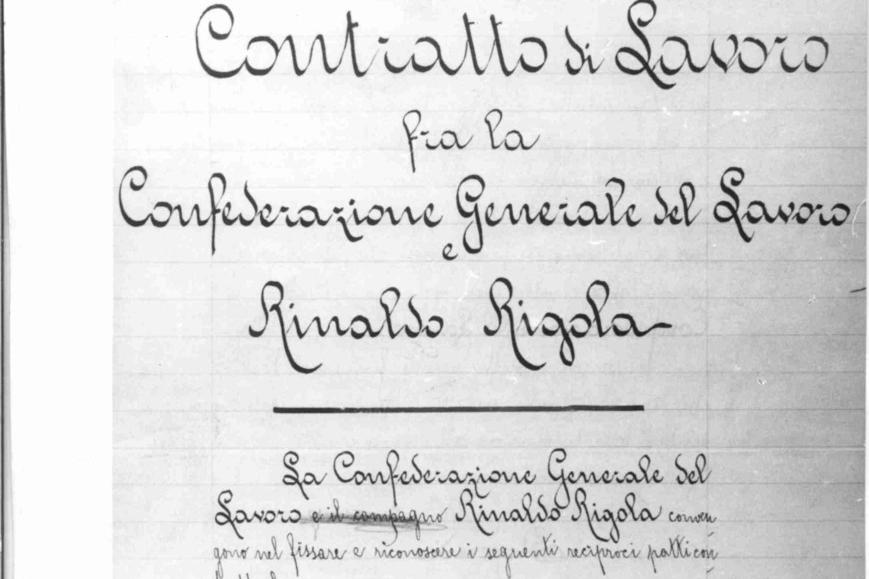 Contratto di Lavoro
fra la
Confederazione Generale del Lavoro
e
Rinaldo Rigola
La Confederazione Generale del
Lavoro e il compagno Rinaldo Rigola conven
gono nel fissare e riconoscere i seguenti reciproci patti con